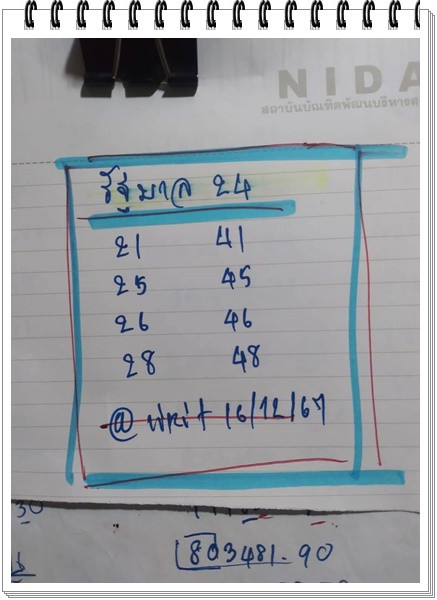 NIDA
สถาบันบัณฑิตพัฒนบริหารศ
รัฐบาล 24
21 41
25 45
26 46
28 48
16/12/67
30
803481-90